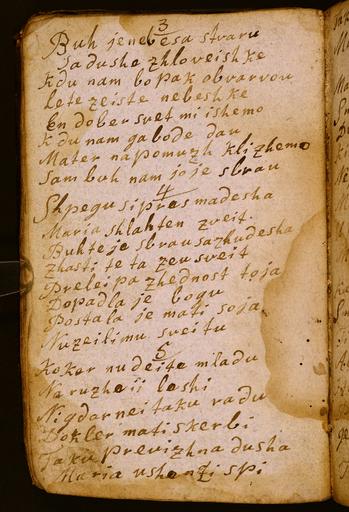 3
Buh je nebesa stvaru
Sa dushe zhloveishke
Kdu nam bo pak obvarvou
Lete zeiste nebeshke
En dober svet mi ishemo
Kdu nam ga bode dau
Mater na pomuzh klizhemo
Sam buh nam jo je sbrau
4
Shpegu si pres madesha
Maria shlahten zveit
Buh te je sbrau sa zhudesha
Zhasti te ta zeu sveit
Prelei pa zhednost toja
Dopadla je bogu
Postala je mati soja
Nuzei limu sveitu
5
Koker nu deite mladu
Na ruzheii leshi
Nigdar nei taku radu
Dokler mati skerbi
Taku previzhna dusha
Maria v shonzi spi